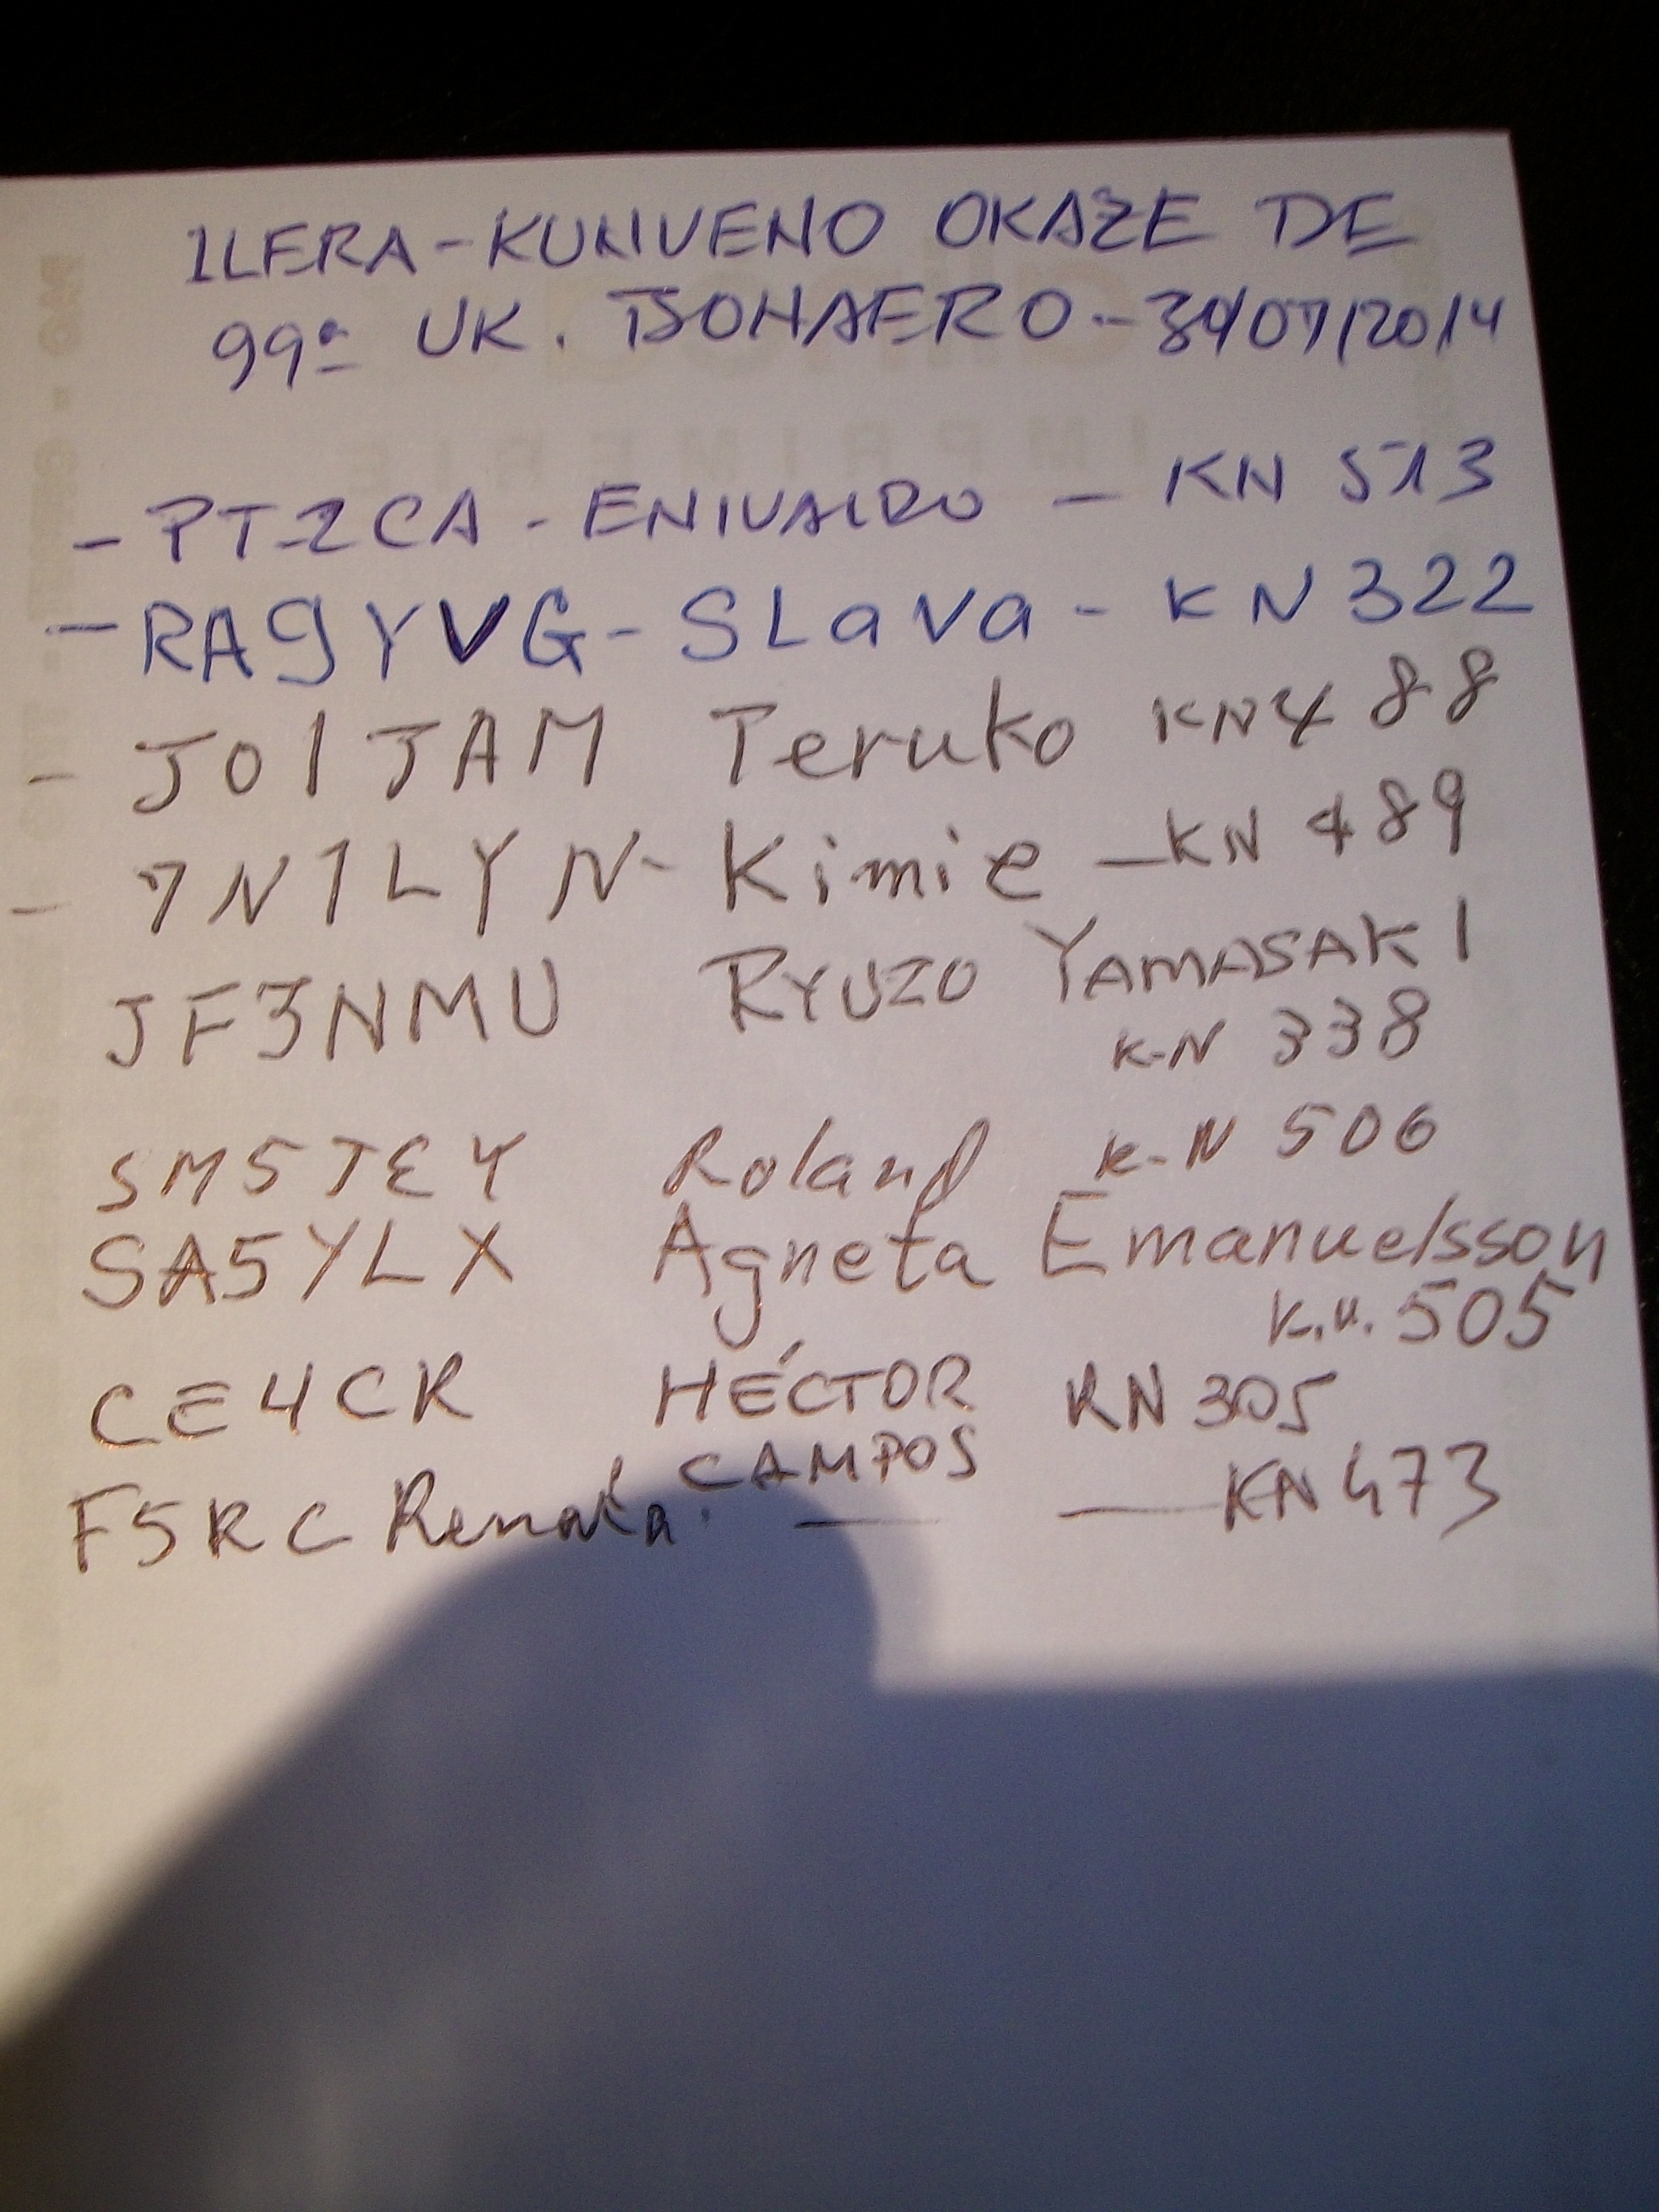 ILERA-KUNVENO OKAZE DE
99ª UK. BONAERO.-30/07/2014
- PT2CA - ENIVALDO - KN 513
- RA9YVG - SLava - KN 322
- JO1JAM Teruko KN488
- 7N1LYN - Kimie - KN 489
JF3NMU RYUZO YAMASAKI
K-N 338
SM5JEY Roland K-N 506
SA5YLX Agneta Emanuelsson
K.N. 505
CE4CK HÉCTOR KN 305
CAMPOS
F5RC Renata. — — KN473